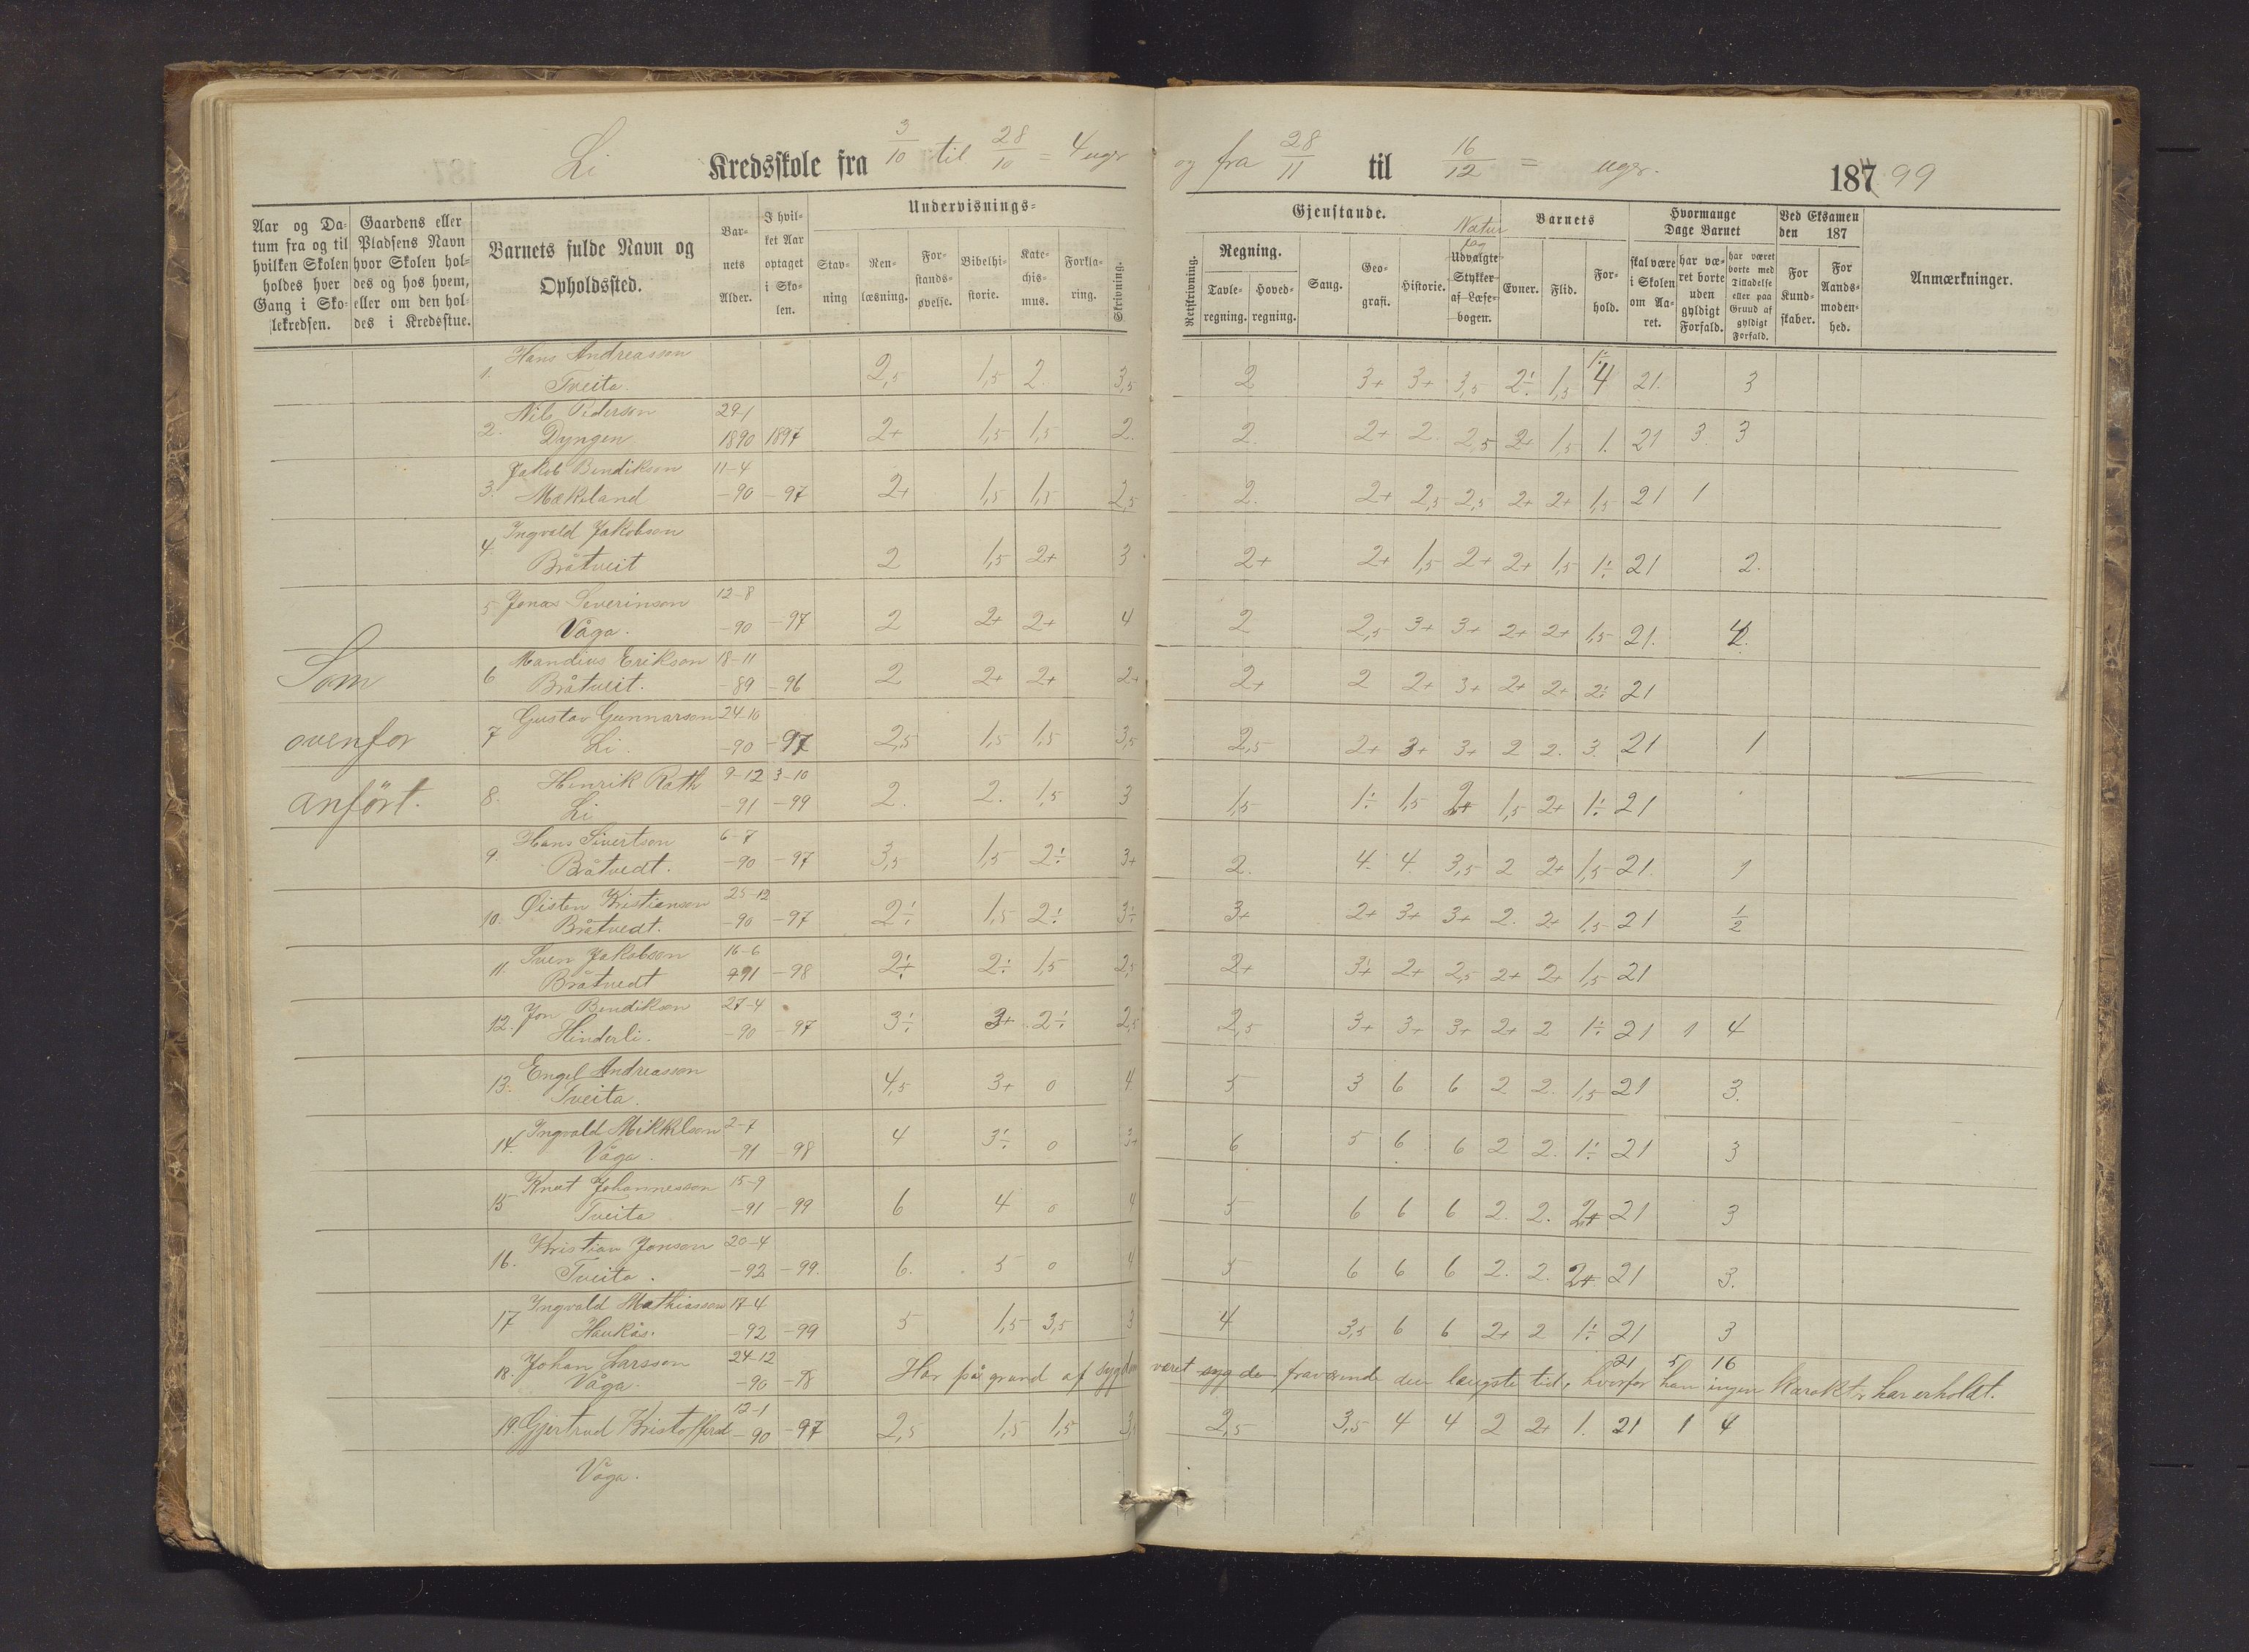 Li Kredsskole fra 3/10 til 28/10 = 4 uger og fra 28/11 til 16/12 = uger. 187 99
Undervisnings- Gjenstande. Barnets Hvormange Dage Barnet Ved Eksamen den 187
Aar og Datum fra og til hvilken Skolen holdes hver Gang i Skolekredsen.
Gaardens eller Pladsens Navn hvor Skolen holdes og hos hvem, eller om den holdes i Kredsstue.
Barnets fulde Navn og Opholdssted.
Barnets Alder.
I hvilket Aar optaget i Skolen.
Stavning
Renlæsning.
Forstandsøvelse.
Bibelhistorie.
Katechismus.
Forklaring.
Skrivning.
Retskrivning.
Regning.
Tavleregning.
Hovedregning.
Sang.
Geografi.
Historie.
Naturfag
Udvalgte Stykker af Læsebogen.
Evner.
Flid.
Forhold.
skal være i Skolen om Aaret.
har været borte uden gyldigt Forfald.
har været borte med Tilladelse eller paa Grund af gyldigt Forfald.
For Kundskaber.
For Aandsmodenhed.
Anmærkninger.
Som
ovenfor
anført.
1. Hans Andreasson 1÷
Tveita. 2,5 1,5 2 3,5 2 3+ 3+ 3,5 2÷ 1,5 4 21. 3
2. Nils Pederson 29-1
Dyngen 1890 1897 2+ 1,5 1,5 2. 2. 2+ 2. 2,5 2+ 1,5 1. 21 3 3
3. Jakob Bendikson 11-4
Mækeland -90 -97 2+ 1,5 1,5 2,5 2. 2+ 2,5 2,5 2+ 2+ 1,5 21 1
4 Ingvald Jakobson
Bråtveit 2 1,5 2+ 3 2+ 2+ 1,5 2+ 2+ 1,5 1÷ 21 2.
5 Jonas Severinson 12-8
Våga. -90 -97 2 2+ 2+ 4 2 2,5 3+ 3+ 2+ 2+ 1,5 21. 2.
6 Mandius Erikson 18-11
Bråtveit. -89 -96 2 2+ 2+ 2+ 2+ 2 2+ 3+ 2+ 2+ 2÷ 21
7 Gustav Gunnarson 24-10
Li. -90 -97 2,5 1,5 1,5 3,5 2,5 2+ 3+ 3+ 2 2. 3. 21 1
8. Henrik Rath 9-12 3-10
Li -91 -99 2. 2. 1,5 3 1,5 1÷ 1,5 2+ 1,5 2+ 1÷ 21
9. Hans Sivertson 6-7
Bråtvedt. -90 -97 3,5 1,5 2÷ 3+ 2. 4. 4. 3,5 2 2+ 1,5 21. 1
10. Øisten Kristianson 25-12
Bråtvedt. -90 -97 2÷ 1,5 2÷ 3÷ 3+ 2+ 3+ 3+ 2. 2+ 1,5 21 1/2
11 Sven Jakobson 16-6
Bråtvedt -91 -98 2÷ 2÷ 1,5 2,5 2+ 3+ 2+ 2,5 2+ 2+ 1,5 21
12. Jon Bendikson 27-4
Hinderli. -90 -97 3÷ 3+ 2÷ 2,5 2,5 3+ 3+ 3+ 2+ 2 1÷ 21 1 4
13. Engel Andreasson
Tveita. 4,5 3+ 0 4 5 3 6 6 2 2. 1,5 21 3.
14. Ingvald Mikkelson 2-7
Våga. -91 -98 4 3÷ 0 3+ 6 5 6 6 2 2. 1÷ 21 3
15 Knut Johannesson 15-9
Tveita -91 -99 6 4 0 4 5 6 6 6 2. 2. 2+ 21 3
16. Kristian Jonson 20-4
Tveita. -92 -99. 6. 5 0 4 5 6 6 6 2. 2. 2+ 21 3.
17 Ingvald Mathiasson 17-4
Haukås. -92 -99 5 1,5 3,5 3 4 3,5 6 6 2+ 2 1÷ 21 3
18. Johan Larsson 24-12 21 5 16
Våga. -90 -98 Har på grund af sygdom været syg de fraværende den længste tid, hvorfor han ingen karakter har erholdt.
19. Gjertrud Kristoffersd 12-1
-90 -97 2,5 1,5 1,5 3,5 2,5 3,5 4 4 2 2+ 1. 21 1 4
Våga.